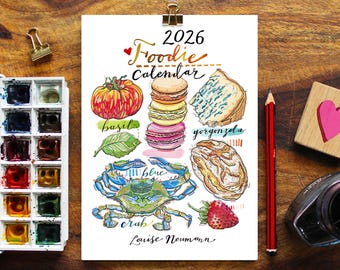 2026
Foodie
Calendar
basil
gorgonzola
blue
crab
Louise Neumann